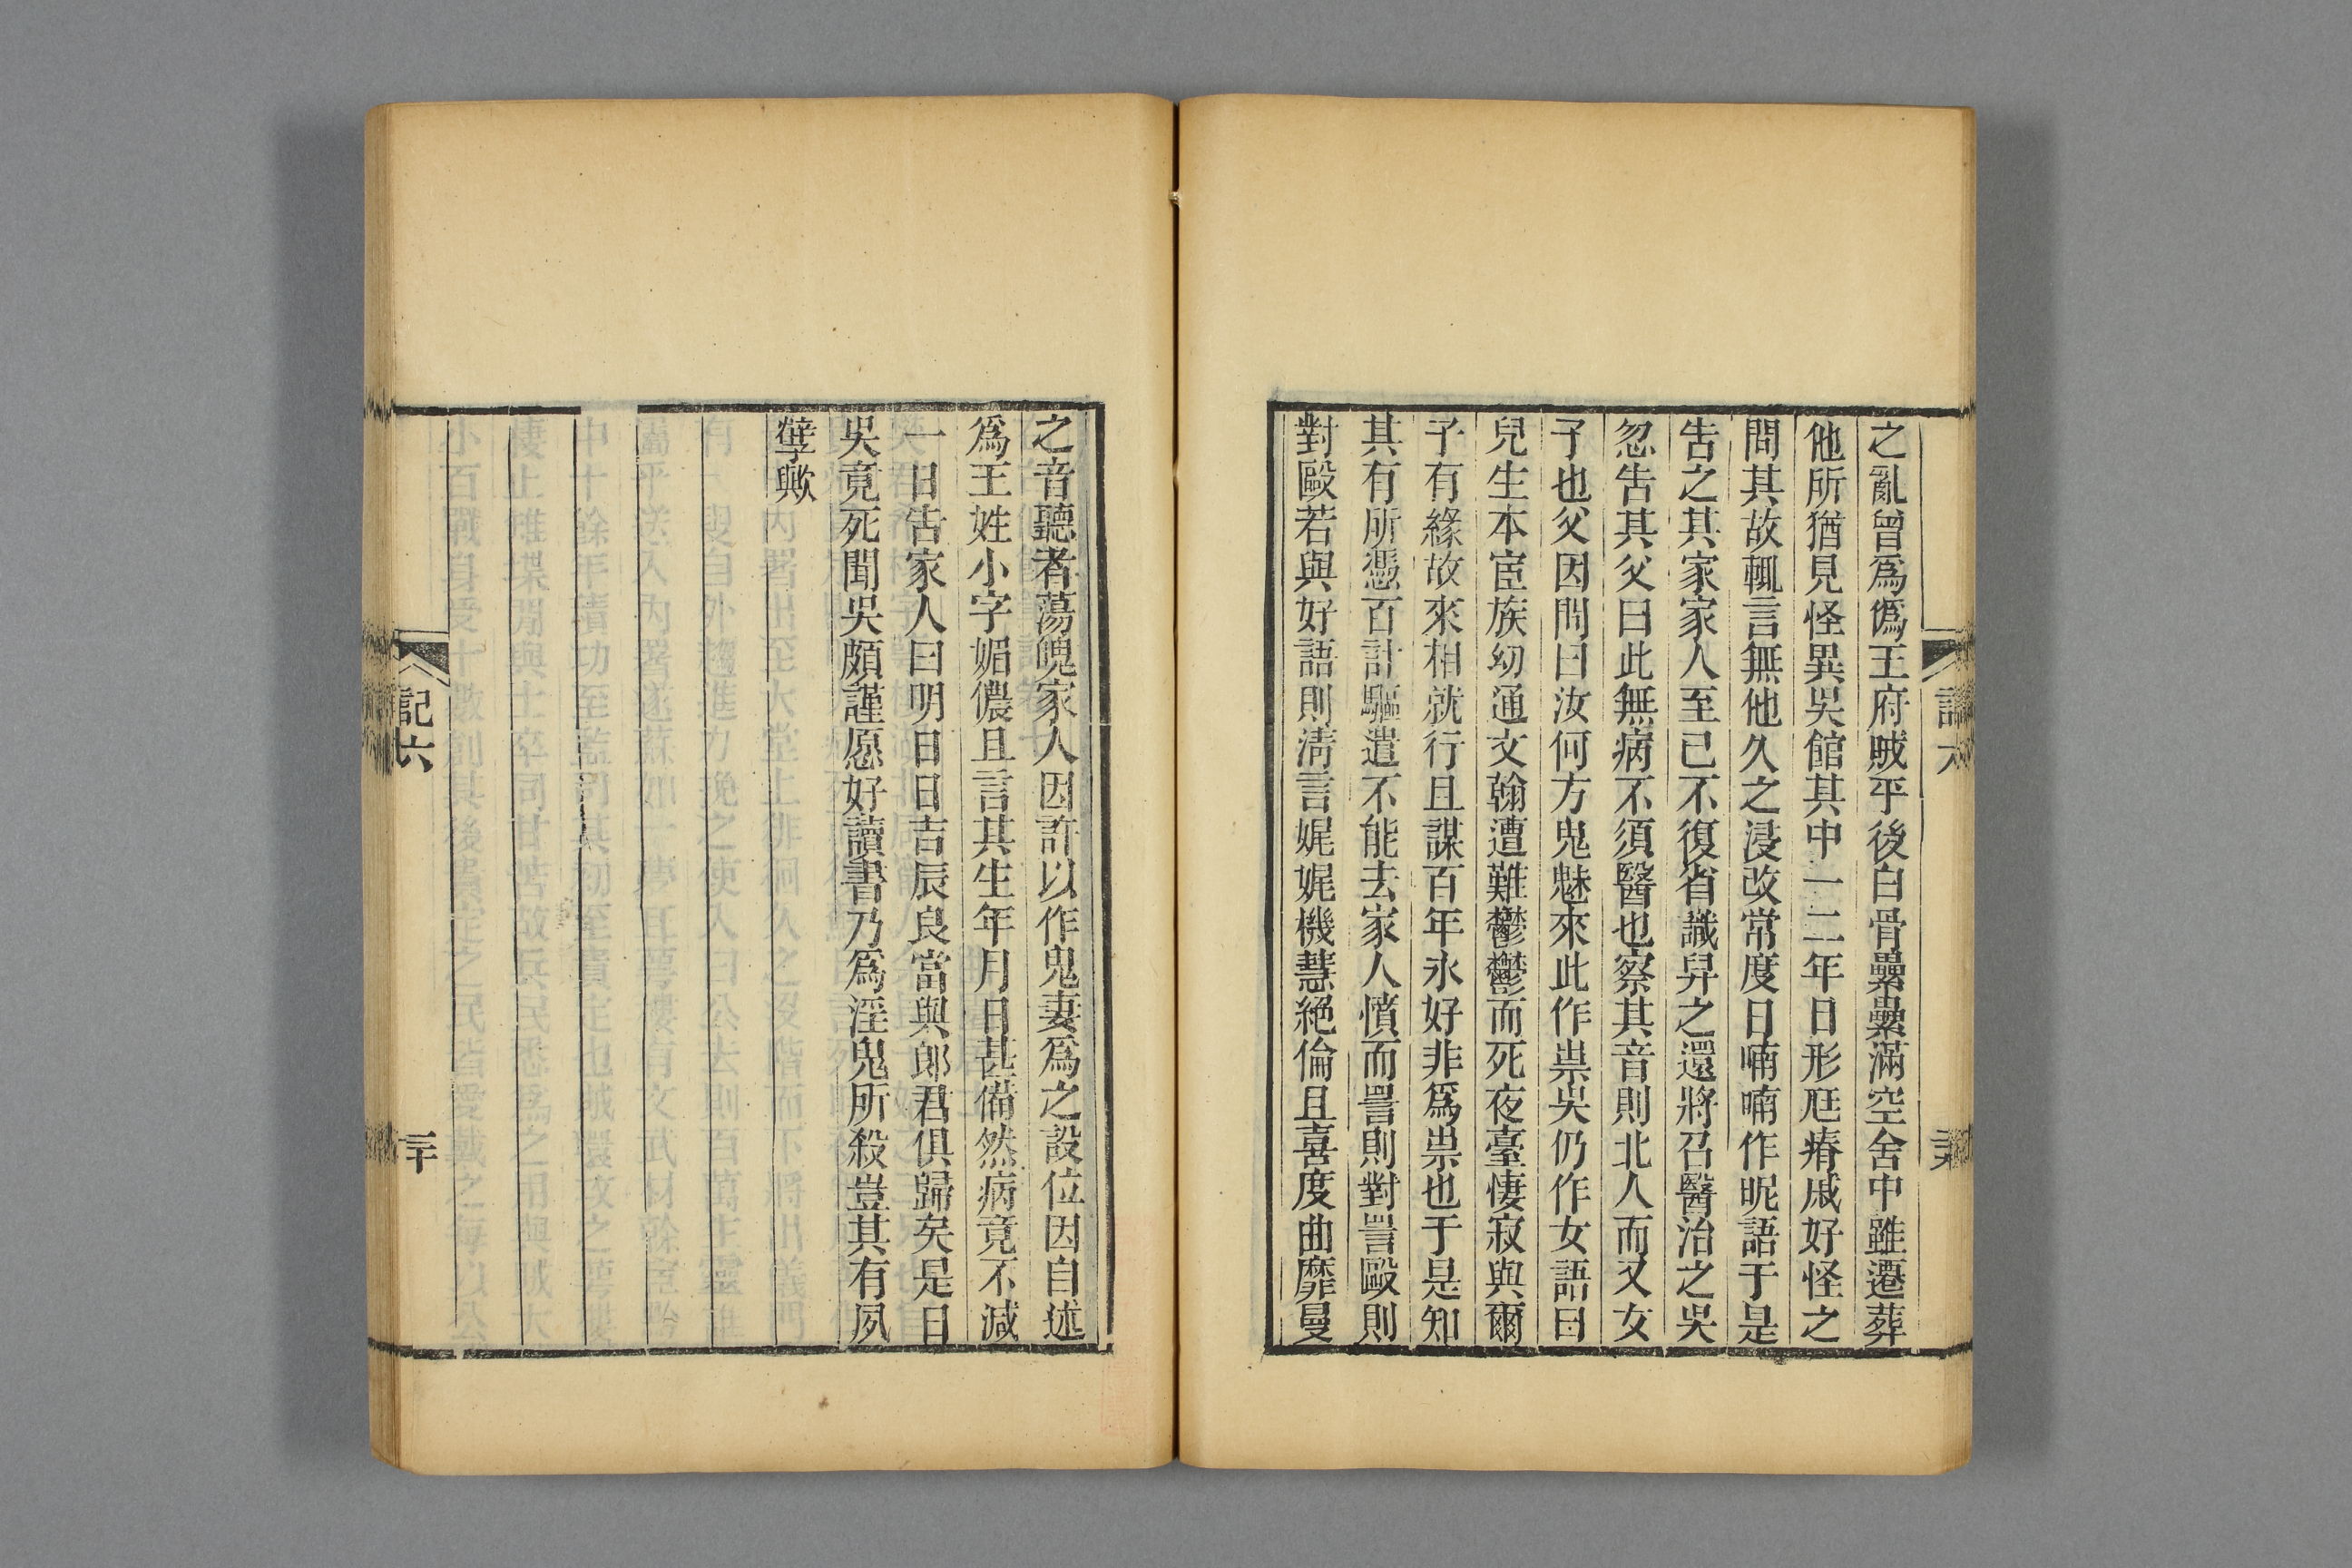 之亂曾爲僞王府賊平後白骨纍纍滿空舍中雖遷葬
他所猶見怪異吳館其中一二年日形尫瘠戚好怪之
問其故輒言無他久之浸改常度日喃喃作昵語于是
吿之其家家人至已不復省識舁之還將召醫治之吳
忽吿其父曰此無病不須醫也察其音則北人而又女
子也父因問曰汝何方鬼魅來此作祟吳仍作女語曰
兒生本宦族幼通文翰遭難鬱鬱而死夜臺悽寂與爾
子有緣故來相就行且謀百年永好非爲祟也于是知
其有所憑百計驅遣不能去家人憤而詈則對詈毆則
對毆若與好語則淸言娓娓機慧絕倫且喜度曲靡曼
之音聽者蕩魄家人因許以作鬼妻爲之設位因自述
爲王姓小字媚儂且言其生年月日甚備然病竟不減
一日吿家人曰明日日吉辰良當與郞君俱歸矣是日
吳竟死聞吳頗謹愿好讀書乃爲淫鬼所殺豈其有夙
孽歟
記六
三十